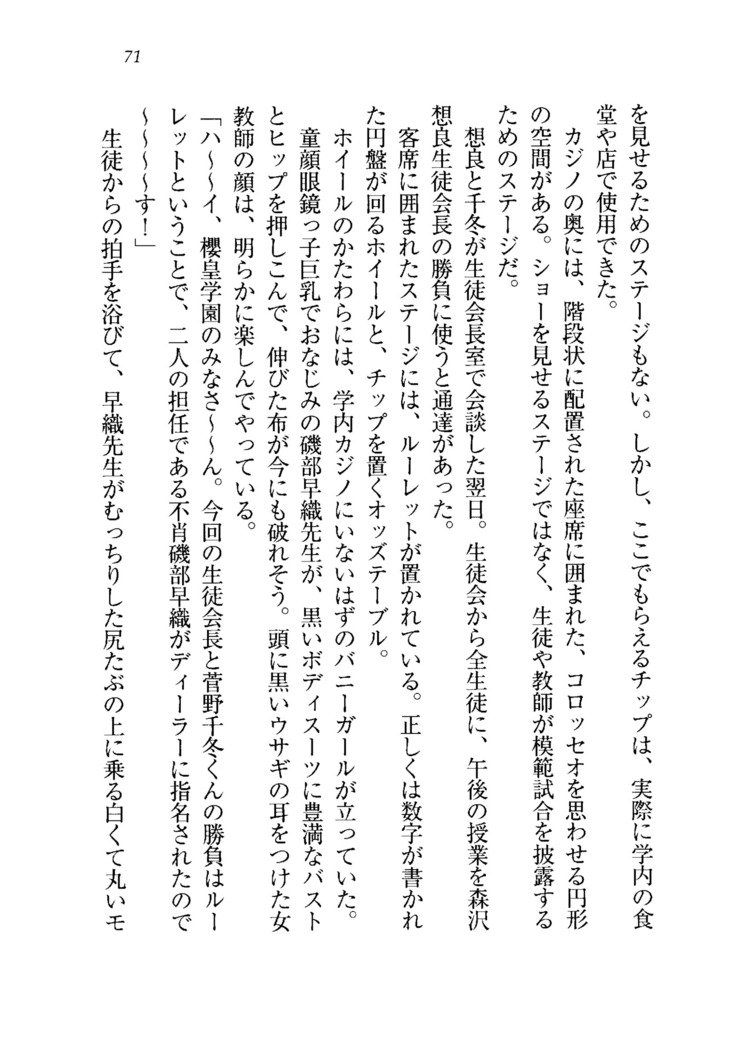 71
を見せるためのステージもない。しかし、ここでもらえるチップは、実際に学内の食
堂や店で使用できた。
カジノの奥には、階段状に配置された座席に囲まれた、コロッセオを思わせる円形
の空間がある。ショーを見せるステージではなく、生徒や教師が模範試合を披露する
ためのステージだ。
想良と千冬が生徒会長室で会談した翌日。生徒会から全生徒に、午後の授業を森沢
想良生徒会長の勝負に使うと通達があった。
客席に囲まれたステージには、ルーレットが置かれている。正しくは数字が書かれ
た円盤が回るホイールと、チップを置くオッズテーブル。
ホイールのかたわらには、学内カジノにいないはずのバニーガールが立っていた。
童顔眼鏡っ子巨乳でおなじみの磯部早織先生が、黒いボディスーツに豊満なバスト
とヒップを押しこんで、伸びた布が今にも破れそう。頭に黒いウサギの耳をつけた女
教師の顔は、明らかに楽しんでやっている。
「ハ～～イ、櫻皇学園のみなさ～～ん。今回の生徒会長と菅野千冬くんの勝負はルー
レットということで、二人の担任である不肖磯部早織がディーラーに指名されたので
～～～～す！」
生徒からの拍手を浴びて、早織先生がむっちりした尻たぶの上に乗る白くて丸いモ